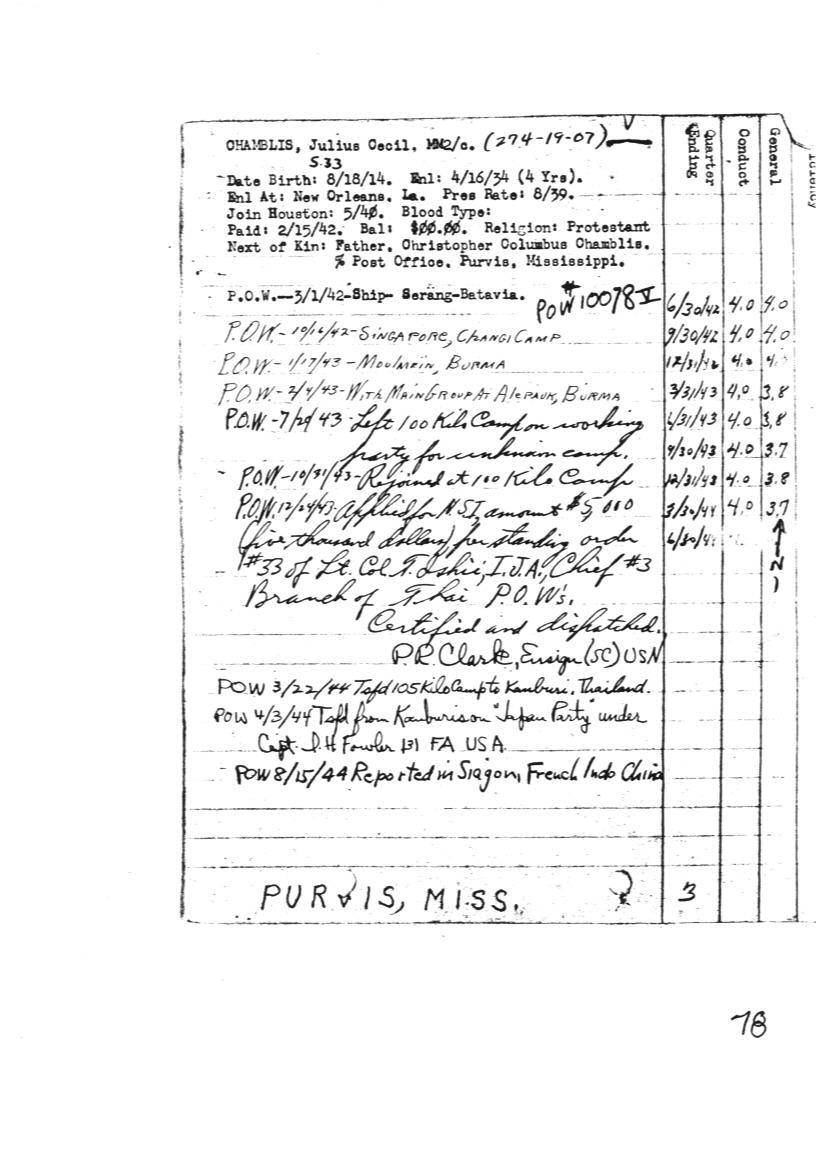 CHAMBLIS, Julius Cecil, MM2/c. (274-19-07)
S 33
Date Birth: 8/18/14. Enl: 4/16/34 (4 Yrs).
Enl At: New Orleans, La. Pres Rate: 8/39.
Join Houston: 5/40. Blood Type:
Paid: 2/15/42. Bal: $00.00. Religion: Protestant
Next of Kin: Father, Christopher Columbus Chamblis,
% Post Office, Purvis, Mississippi.
Quarter Ending Conduct General
P.O.W.--3/1/42-Ship- Serang-Batavia. POW # 10078 V 6/30/42 4.0 4.0
P.O.W.- 10/16/42-SINGAPORE, CHANGI CAMP 9/30/42 4.0 4.0
P.O.W.- 1/17/43 - MOULMEIN, BURMA 12/31/42 4.0
P.O.W.- 2/4/43-WITH MAIN GROUP AT ALEPAUK, BURMA 3/31/43 4.0 3.8
P.O.W.-7/ 43-Left 100 Kilo Camp on working 6/31/43 4.0 3.8
party for unknown camp. 9/30/43 4.0 3.7
P.O.W.-10/31/43-Rejoined at 100 Kilo Camp 12/31/43 4.0 3.8
P.O.W. 12/24/43-Applied for N.S.I, amount $5,000 3/30/44 4.0 3.7
(five thousand dollars) per standing order 6/30/44
#33 of Lt. Col. T. Ishii, I.J.A., Chief #3
Branch of Thai P.O.W's.
Certified and dispatched.
P.R. Clark, Ensign (SC) USN
POW 3/22/44 Tsfd 105 Kilo Camp to Kanburi, Thailand.
POW 4/3/44 Tsfd from Kanburi on "Japan Party" under
Capt. I.H Fowler 131 FA USA
POW 8/15/44 Reported in Siagon, French Indo China
PURVIS, MISS. 3
78